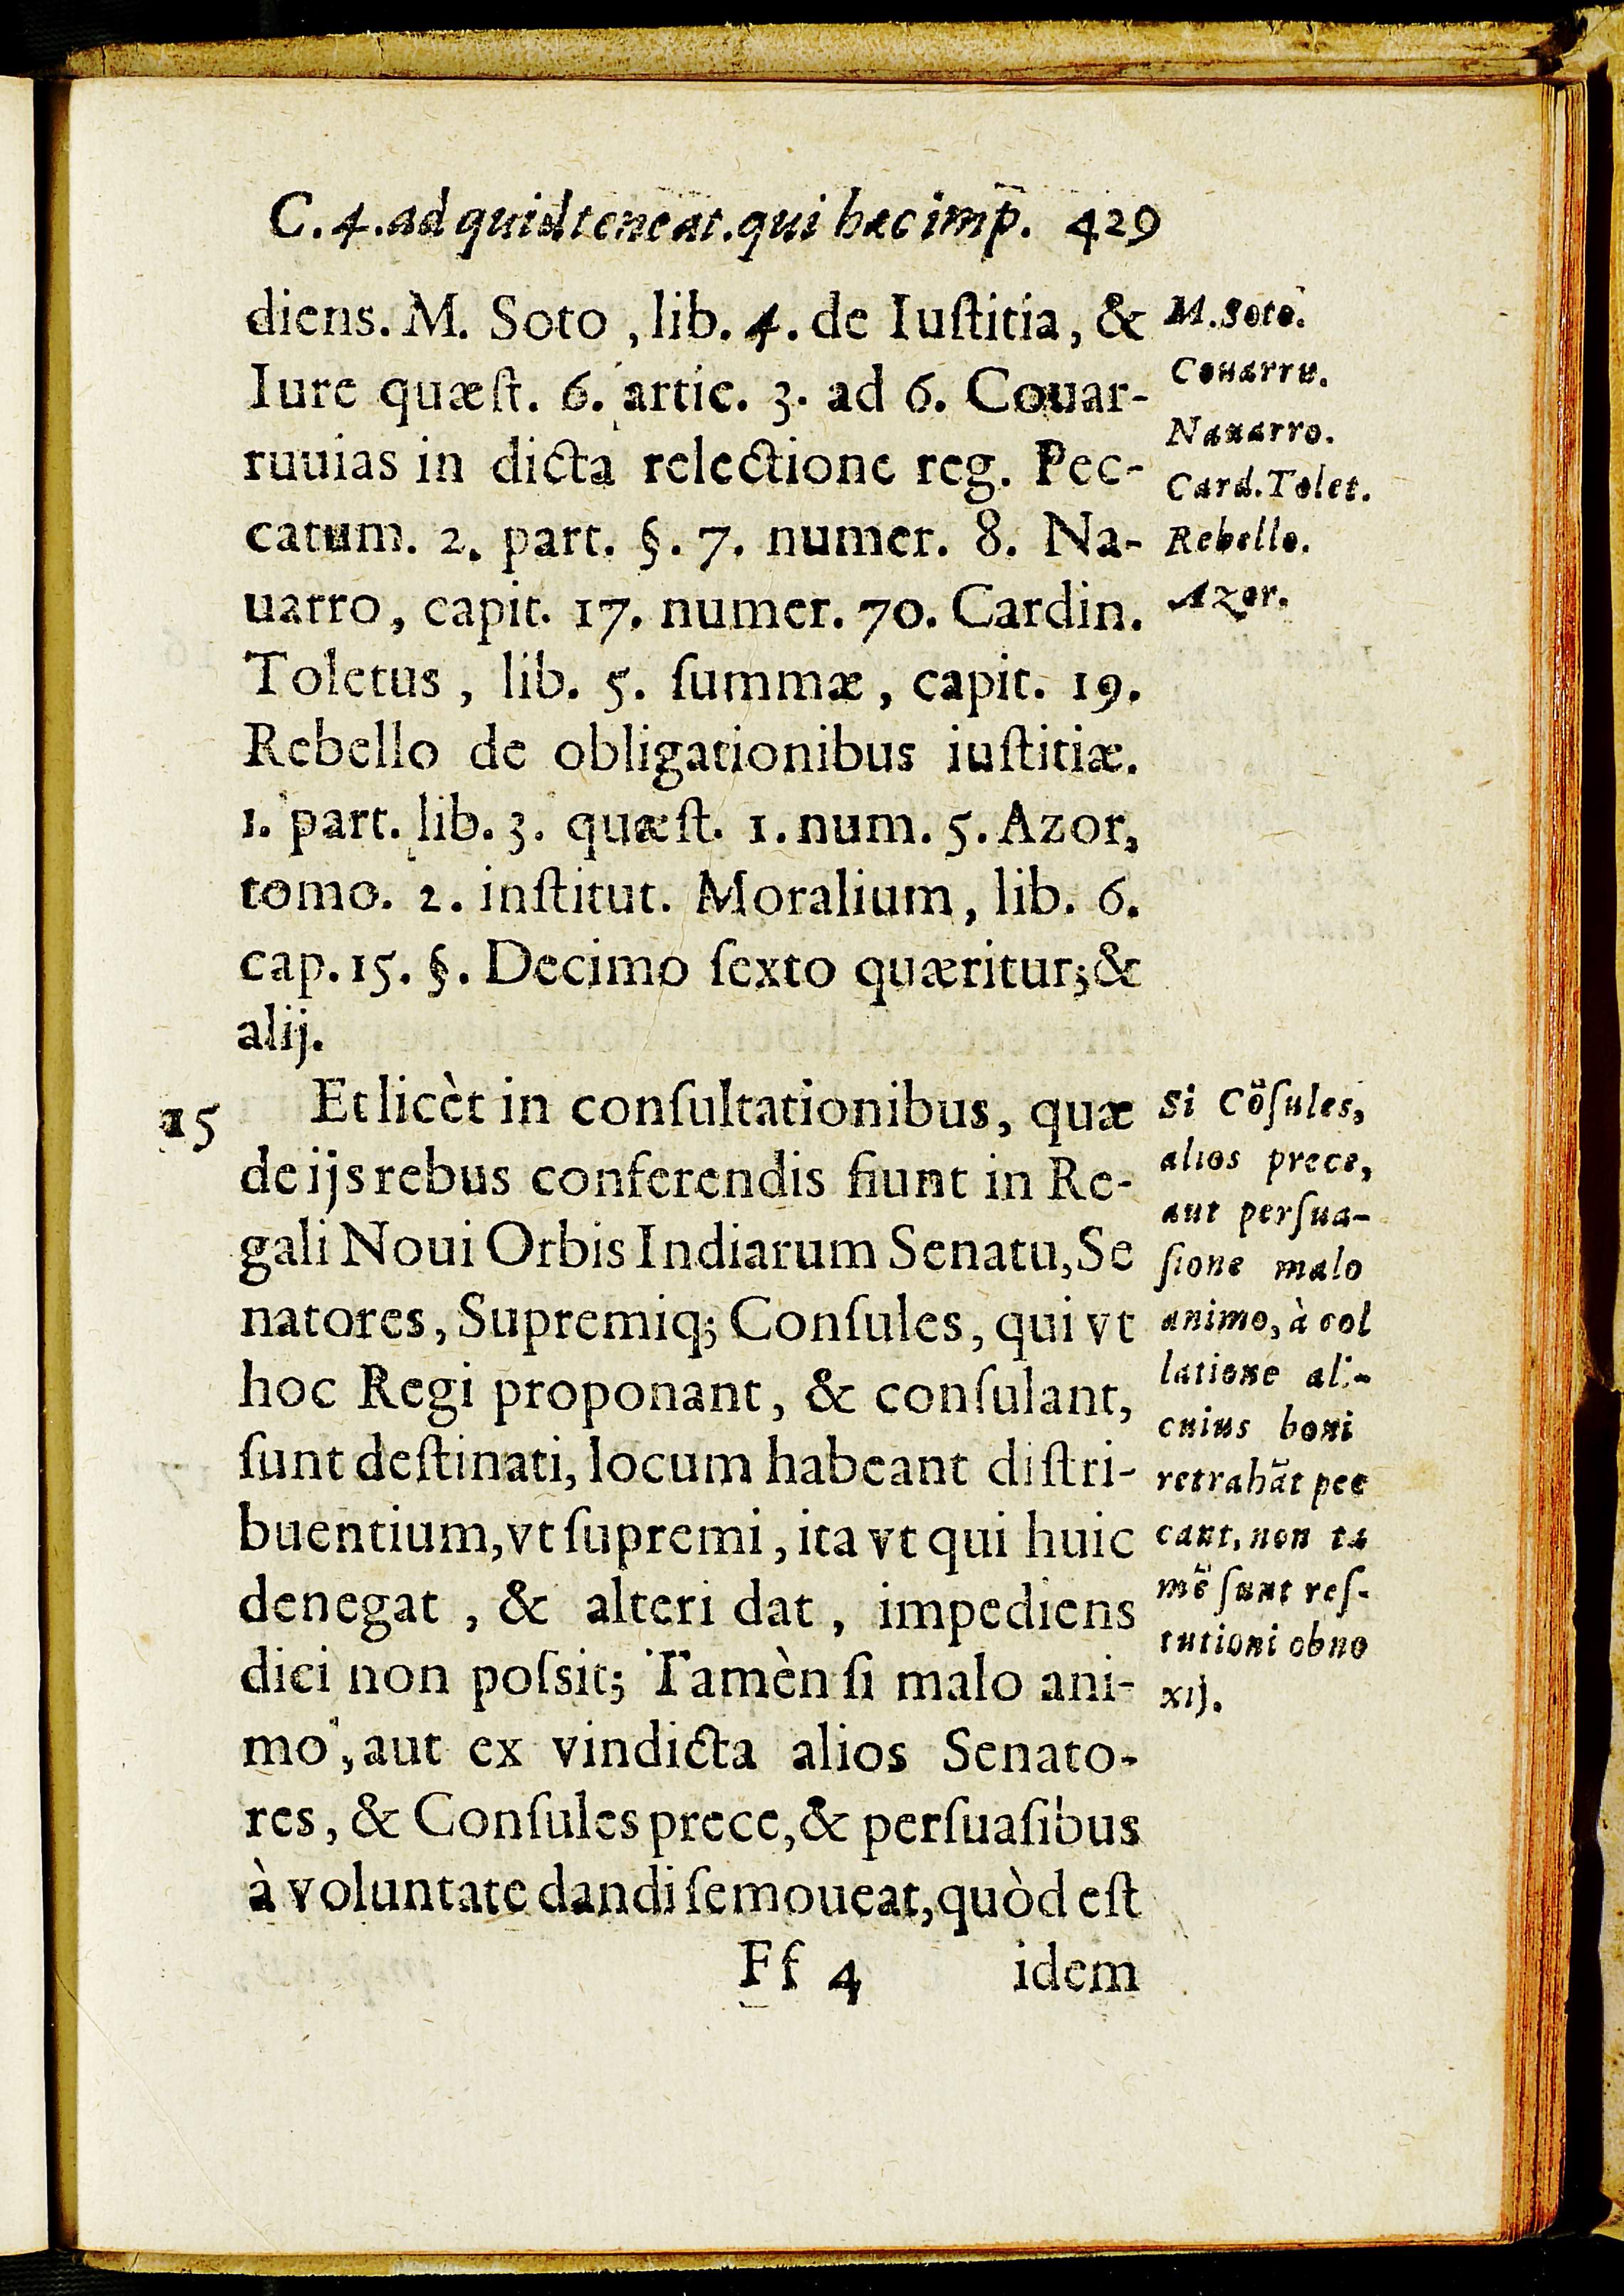 C. 4. ad quid teneat. qui hæc imp̄. 429
diens. M. Soto, lib. 4. de Iuſtitia, &
Iure quæſt. 6. artic. 3. ad 6. Couar-
ruuias in dicta relectione reg. Pec-
catum. 2. part. §. 7. numer. 8. Na-
uarro, capit. 17. numer. 70. Cardin.
Toletus, lib. 5. ſummæ, capit. 19.
Rebello de obligationibus iuſtitiæ.
1. part. lib. 3. quæſt. 1. num. 5. Azor,
tomo. 2. inſtitut. Moralium, lib. 6.
cap. 15. §. Decimo ſexto quæritur; &
alij.
M. Soto.
Couarru.
Nauarro.
Card. Tolet.
Rebello.
Azor.
15
Et licèt in conſultationibus, quæ
de ijs rebus conferendis fiunt in Re-
gali Noui Orbis Indiarum Senatu, Se
natores, Supremiq; Conſules, qui vt
hoc Regi proponant, & conſulant,
ſunt deſtinati, locum habeant diſtri-
buentium, vt ſupremi, ita vt qui huic
denegat, & alteri dat, impediens
dici non poſsit; Tamèn ſi malo ani-
mo, aut ex vindicta alios Senato-
res, & Conſules prece, & perſuaſibus
à voluntate dandi ſemoueat, quòd eſt
Si Cõſules,
alios prece,
aut perſua-
ſione malo
animo, à col
latione ali-
cuius boni
retrahãt pec
cant, non ta
mẽ ſunt reſ-
tutioni obno
xij.
Ff 4 idem